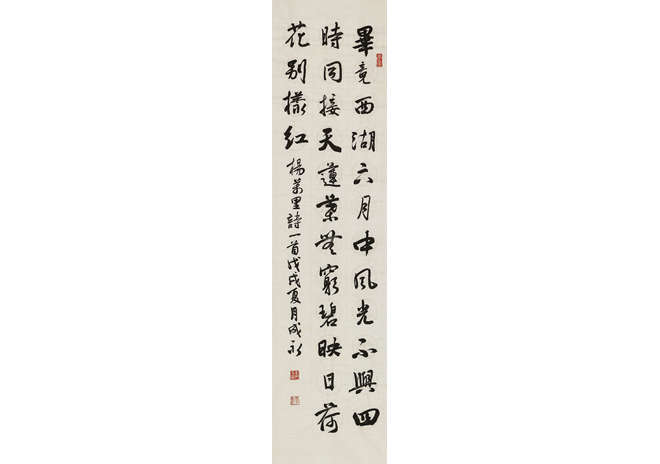 畢竟西湖六月中風光不與四
時同接天蓮葉無窮碧映日荷
花別樣紅
楊萬里詩一首戊戌夏月成永